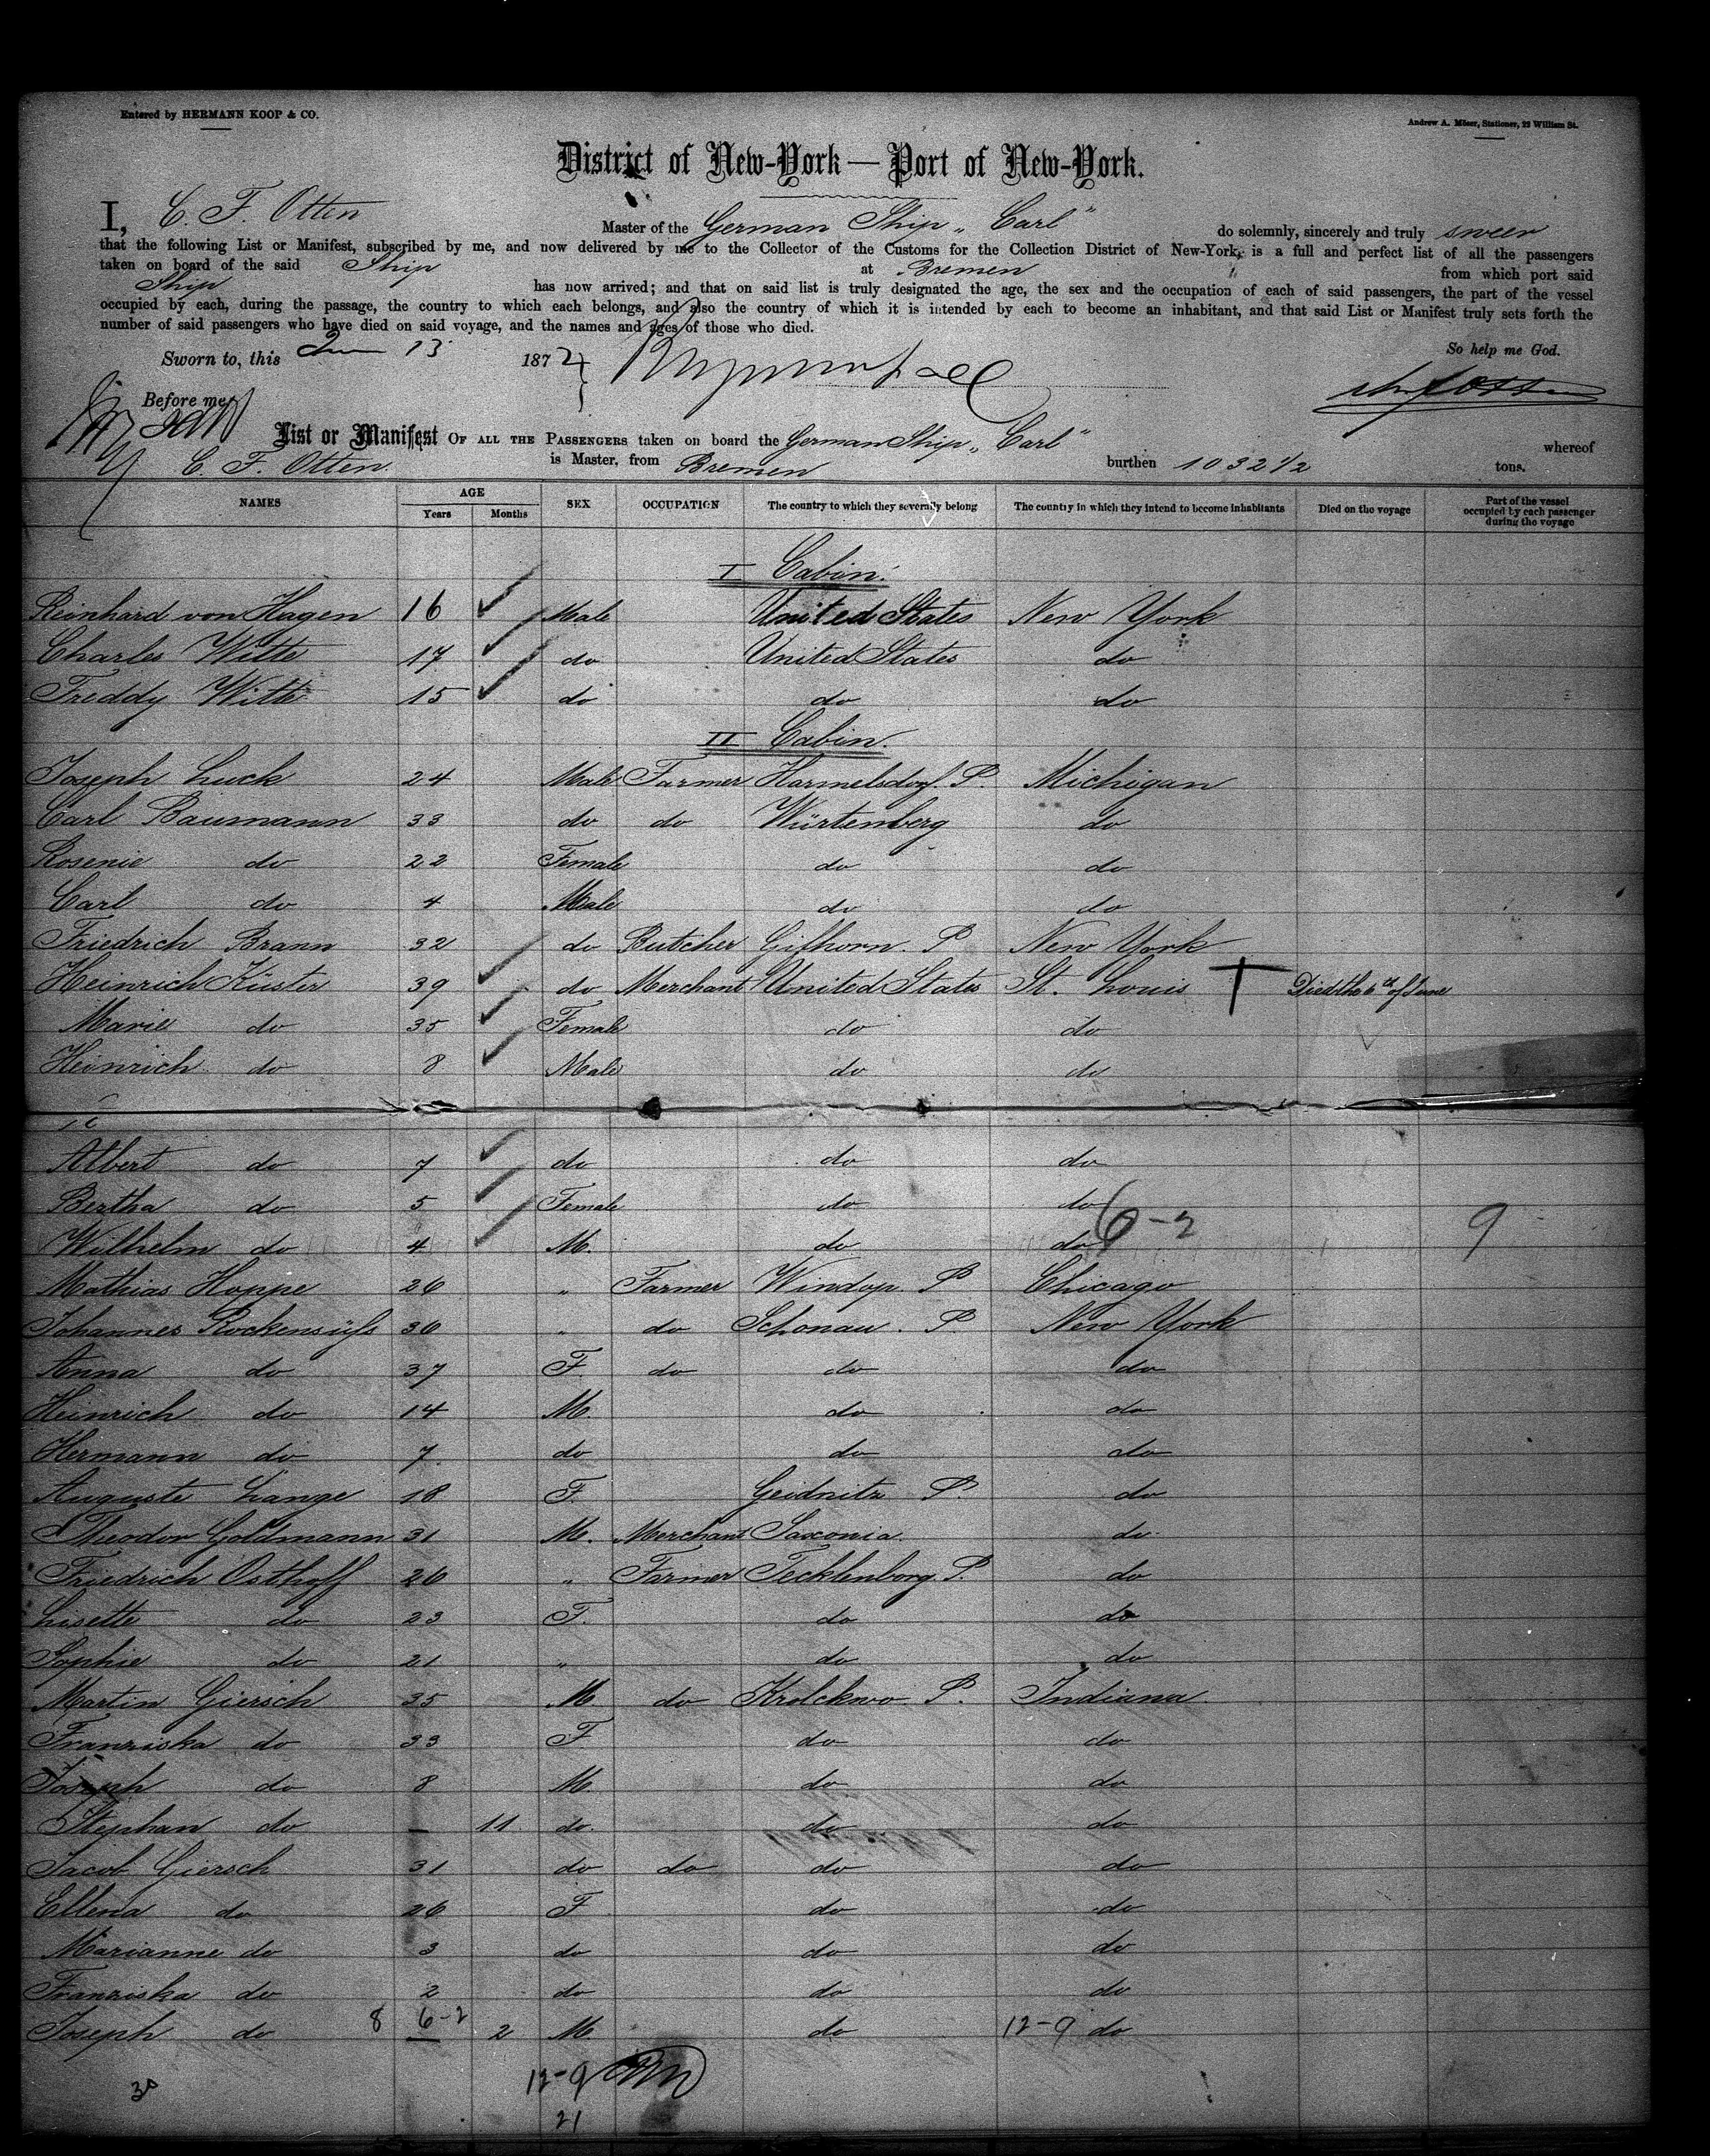 Entered by HERMANN KOOP & CO.
Andrew A. Möser, Stationer, 22 William St.
District of New-York — Port of New-York.
I, C. F. Otten Master of the German Ship „Carl" do solemnly, sincerely and truly sweer
that the following List or Manifest, subscribed by me, and now delivered by me to the Collector of the Customs for the Collection District of New-York, is a full and perfect list of all the passengers
taken on board of the said Ship at Bremen from which port said
Ship has now arrived; and that on said list is truly designated the age, the sex and the occupation of each of said passengers, the part of the vessel
occupied by each, during the passage, the country to which each belongs, and also the country of which it is intended by each to become an inhabitant, and that said List or Manifest truly sets forth the
number of said passengers who have died on said voyage, and the names and ages of those who died.
So help me God.
Sworn to, this 13 187
Before me,
List or Manifest OF ALL THE PASSENGERS taken on board the German Ship „Carl" whereof
C. F. Otten. is Master, from Bremen burthen 1032 1/2 tons.
NAMES AGE Years Months SEX OCCUPATION The country to which they severally belong The country in which they intend to become inhabitants Died on the voyage Part of the vessel occupied by each passenger during the voyage
I Cabin.
Reinhard von Hagen 16 Male United States New York
Charles Witte 17 do United States do
Freddy Witte 15 do do do
II Cabin.
Joseph Luck 24 Male Farmer Harmelsdorf. P. Michigan
Carl Baumann 33 do do Würtenberg do
Rosenie do 22 Female do do
Carl do 4 Male do do
Friedrich Brann 32 do Butcher Gifhorn. P New York
Heinrich Küster 39 do Merchant United States St. Louis † Died the 6th of June
Marie do 35 Female do do
Heinrich do 8 Male do do
Albert do 7 do do do
Bertha do 5 Female do do
6-2 9
Wilhelm do 4 M. do do
Mathias Hoppe 26 " Farmer Windop. P Chicago
Johannes Rockensüfs 36 " do Schonau. P. New York
Anna do 37 F. do do do
Heinrich do 14 M. do do
Hermann do 7. do do do
Auguste Lange 18 F. Geidnitz P. do
Theodor Goldmann 31 M. Merchant Saxonia. do
Friedrich Osthoff 26 " Farmer Tecklenborg. P. do
Lisette do 23 F. do do
Sophie do 21 " do do
Martin Giersch 35 M do Krolckwo P. Indiana
Franziska do 33 F do do
Joseph do 8 M. do do
Stephan do — 11 do. do do
Jacob Giersch 31 do do do do
Ellena do 26 F do do
Marianne do 3 do do do
Franziska do 2 do do do
8 6-2 12-9
Joseph do — 2 M do do
12-9
30
21